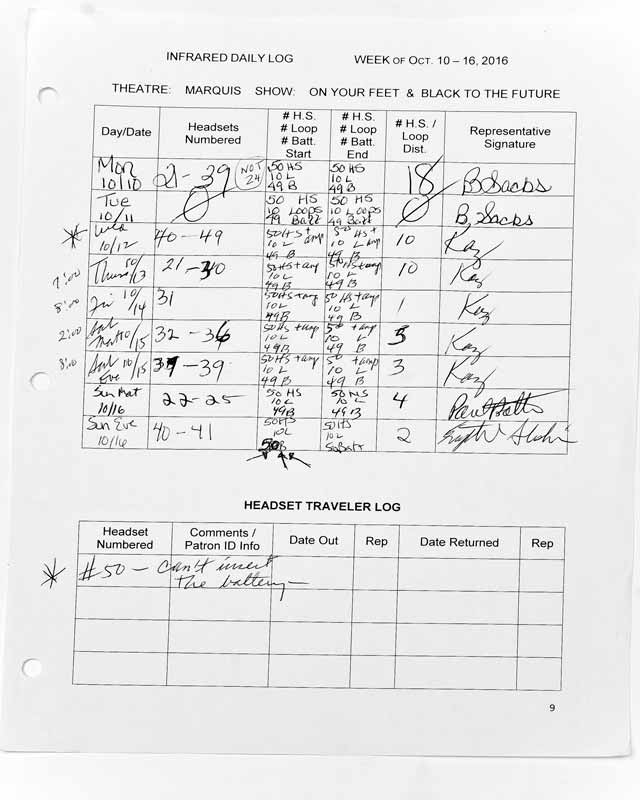 INFRARED DAILY LOG WEEK OF OCT. 10 – 16, 2016
THEATRE: MARQUIS SHOW: ON YOUR FEET & BLACK TO THE FUTURE
Day/Date Headsets Numbered # H.S. # Loop # Batt. Start # H.S. # Loop # Batt. End # H.S. / Loop Dist. Representative Signature
Mon 10/10 21 – 39 NOT 24 50 HS 10 L 49 B 50 HS 10 L 49 B 18 B. Sacks
Tue 10/11 0 50 HS 10 Loops 49 Batt 50 HS 10 Loops 49 Batt 0 B. Sacks
* Wed 10/12 40 – 49 50 HS + amp 10 L 49 B 50 HS + amp 10 L 49 B 10 Kaz
7:00 Thurs 10/13 21 – 30 50 HS + amp 10 L 49 B 50 HS + amp 10 L 49 B 10 Kaz
8:00 Fri 10/14 31 50 HS + amp 10 L 49 B 50 HS + amp 10 L 49 B 1 Kaz
2:00 Sat Mat 10/15 32 – 36 50 HS + amp 10 L 49 B 50 + amp 10 L 49 B 5 Kaz
8:00 Sat Eve 10/15 37 – 39 50 HS + amp 10 L 49 B 50 + amp 10 L 49 B 3 Kaz
Sun Mat 10/16 22 – 25 50 HS 10 L 49 B 50 HS 10 L 49 B 4
Sun Eve 10/16 40 – 41 50 HS 10 L 50 B 50 HS 10 L 50 Batt 2
HEADSET TRAVELER LOG
Headset Numbered Comments / Patron ID Info Date Out Rep Date Returned Rep
* #50 – can't insert
the battery –
9